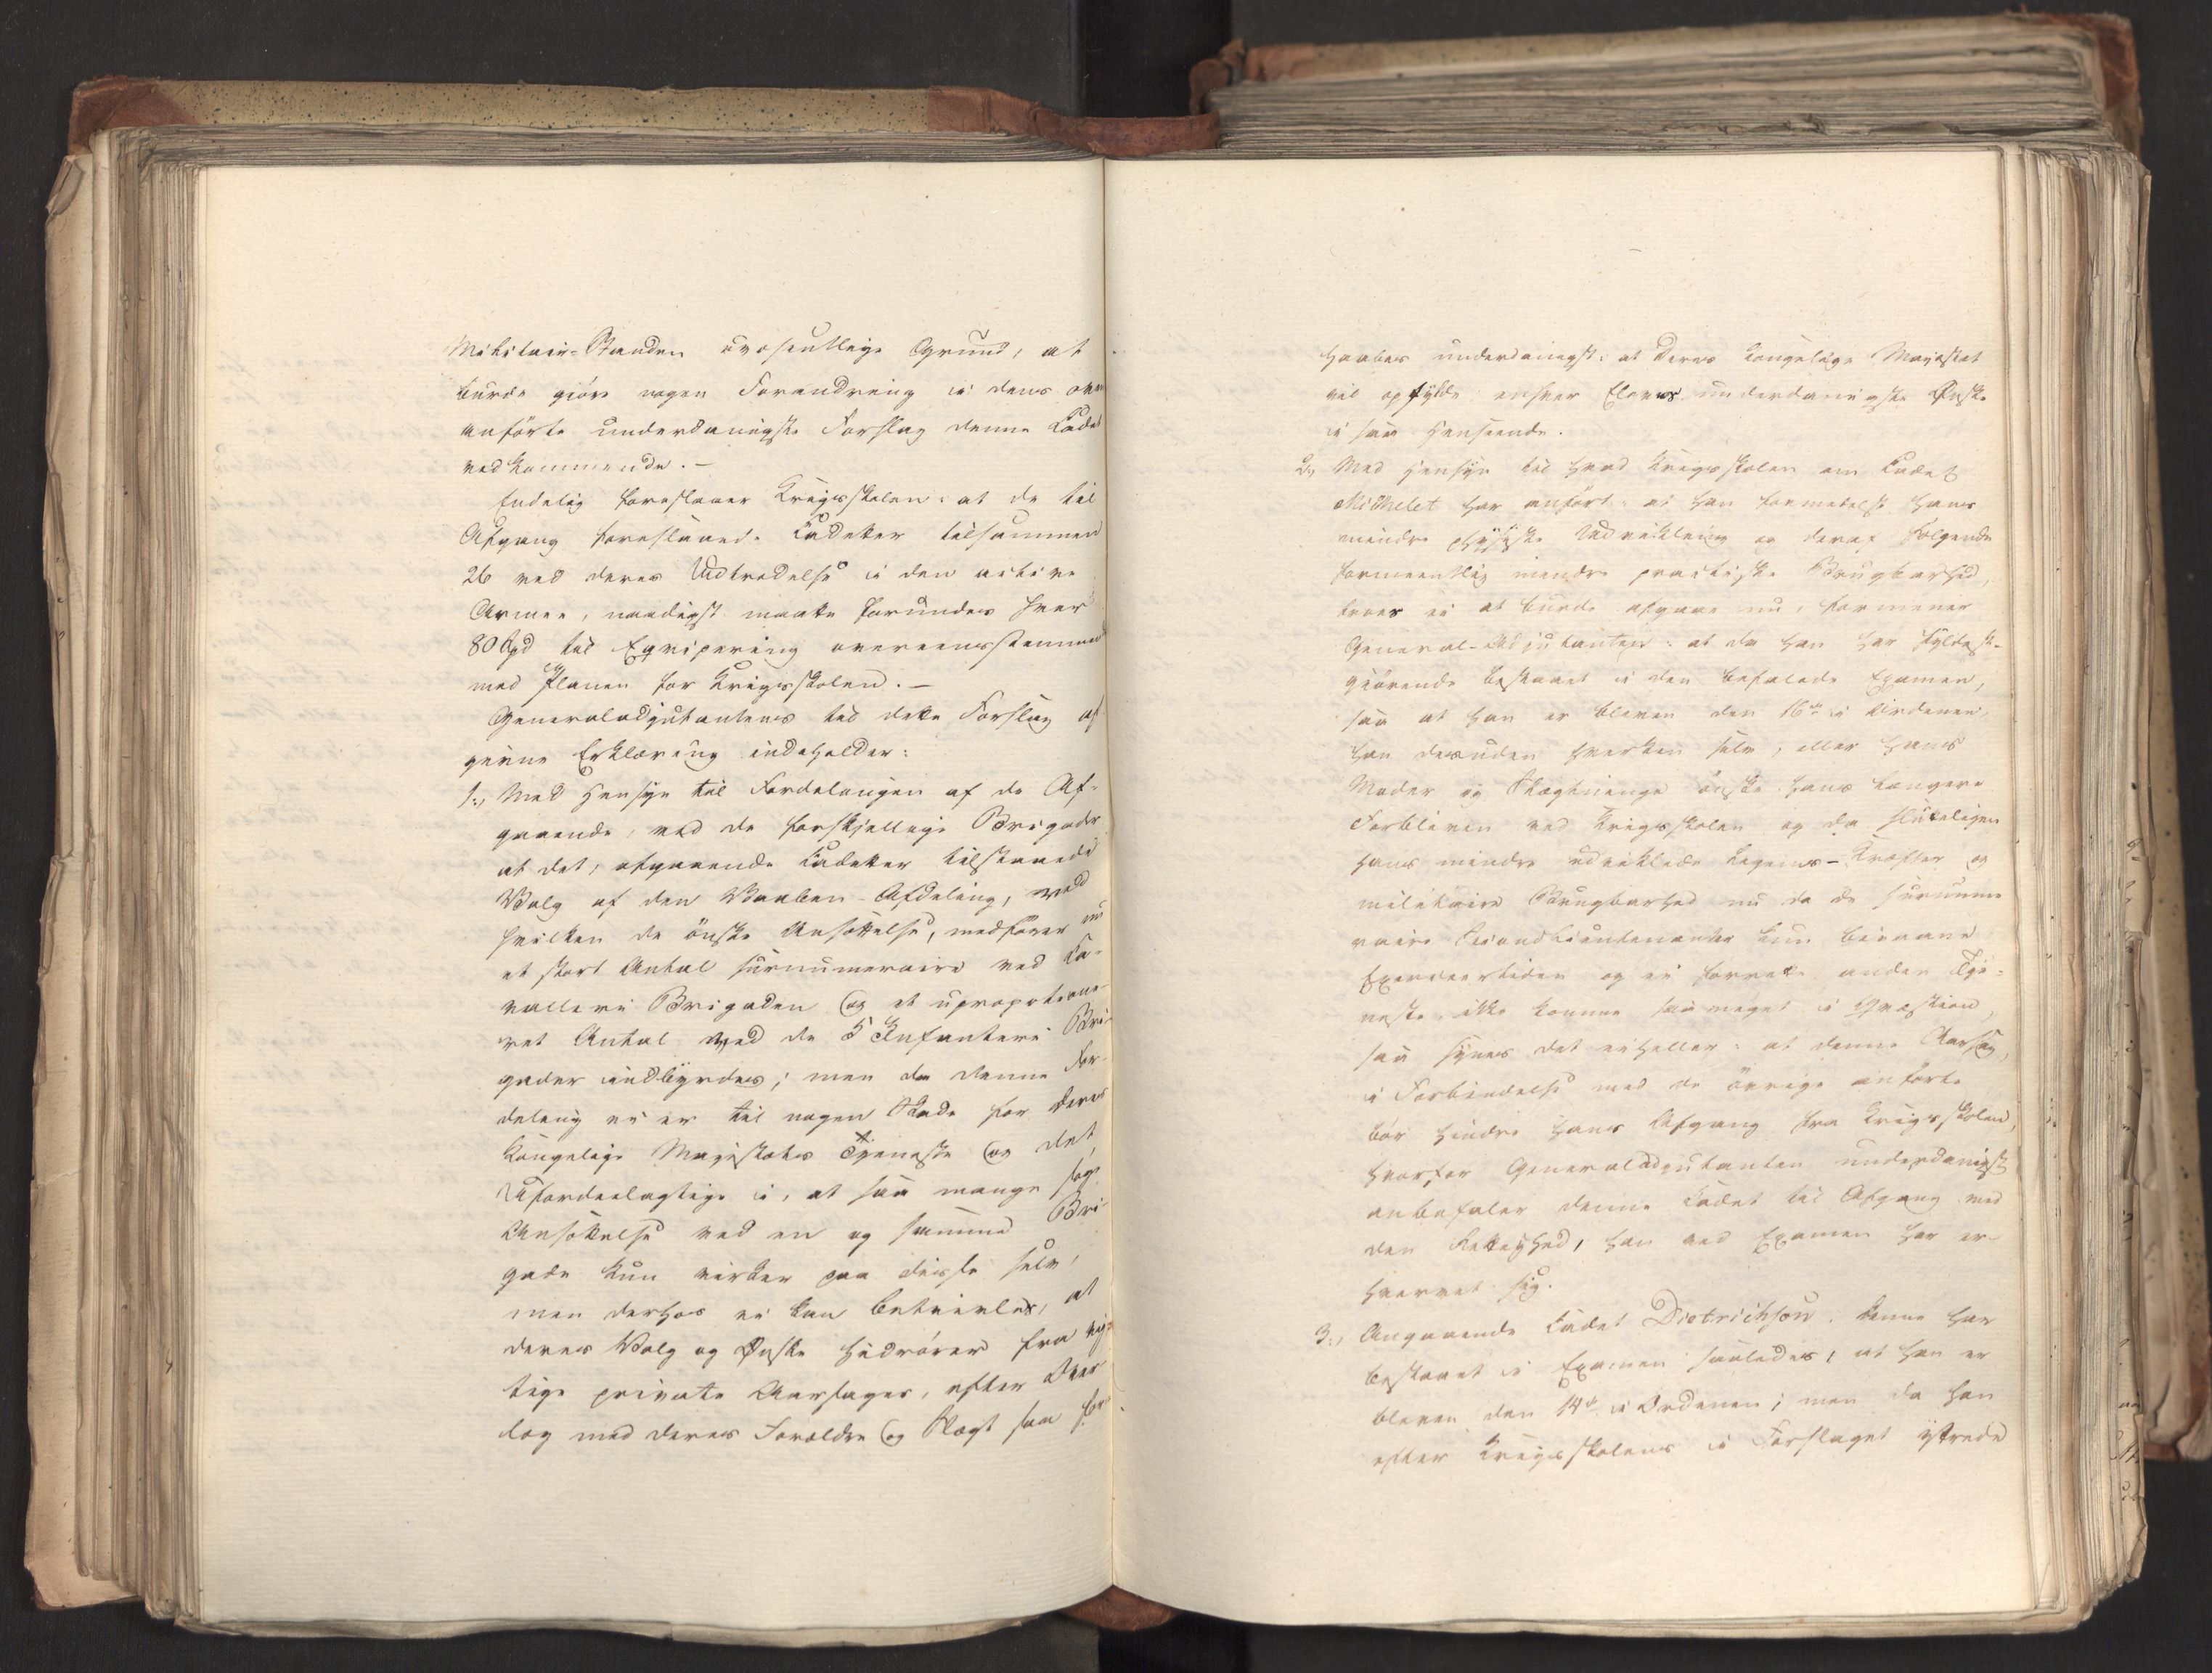 Militair-Standen uvæsentlige Grund, at
burde gjøre nogen Forandring i dens oven
anförte underdanigste Forslag denne Cadet
vedkommende. —
Endelig foreslaaer Krigsskolen: at de til
Afgang foreslaaede Cadetter tilsammen
26 ved deres Udtrædelse i den active
Armee, naadigst maatte forundes hver
80 Spd til Eqvipering overeensstemmende
med Planen for Krigsskolen. —
Generaladjutantens til dette Forslag af
givne Erklæring indeholder:
1., Med Hensyn til Fordelingen af de Af-
gaaende, ved de forskjellige Brigader
at det, afgaaende Cadetter tilstaaede
Valg af den Vaaben-Afdeling, ved
hvilken de önske Ansættelse, medfører nu
et stort Antal surnumeraire ved Ca-
vallerie Brigaden og et uproportione-
ret Antal ved de 5 Infanterie Bri-
gader indbyrdes; men da denne For-
deling ei er til nogen Skade for Deres
Kongelige Majestæts Tjeneste og det
Ufordeelagtige i, at saa mange søge
Ansættelse ved en og samme Bri-
gade kun virker paa disse selv,
men derhos ei kan betvivles, at
deres Valg og Ønske hidrörer fra vig-
tige private Aarsager, efter Over
læg med deres Forældre og Slægt saa
haabes underdanigst: at Deres Kongelige Majestæt
vil opfylde enhver Elevs underdanigste Ønske
i saa Henseende.
2., Med Hensyn til hvad Krigsskolen om Cadet
Michelet har anfört: at han formedelst hans
mindre physiske Udvikling og deraf fölgende
formeentlig mindre practiske Brugbarhed,
troes ei at burde afgaae nu, formener
General-Adjutanten: at da han har fyldest-
gjörende bestaaet i den befalede Examen,
saa at han er bleven den 16de i Ordenen,
han desuden hverken selv, eller hans
Moder og Slægtninge önske hans længere
Forbliven ved Krigsskolen og da sluteligen
hans mindre udviklede Legems-Kræfter og
militaire Brugbarhed nu da de surnume
raire Secondlieutenanter kun bivaane
Exerceertiden og ei forrette anden Tje-
neste, ikke komme saa meget i Qvæstion,
saa synes det eiheller: at denne Aarsag,
i Forbindelse med de övrige anförte
bör hindre hans Afgang fra Krigsskolen,
hvorfor Generaladjutanten underdanigst
anbefaler denne Cadet til Afgang med
den Rettighed, han ved Examen har er-
hvervet sig.
3., Angaaende Cadet Dietrichson. Denne har
bestaaet i Examen saaledes, at han er
bleven den 14de i Ordenen; men da han
efter Krigsskolens i Forslaget yttrede